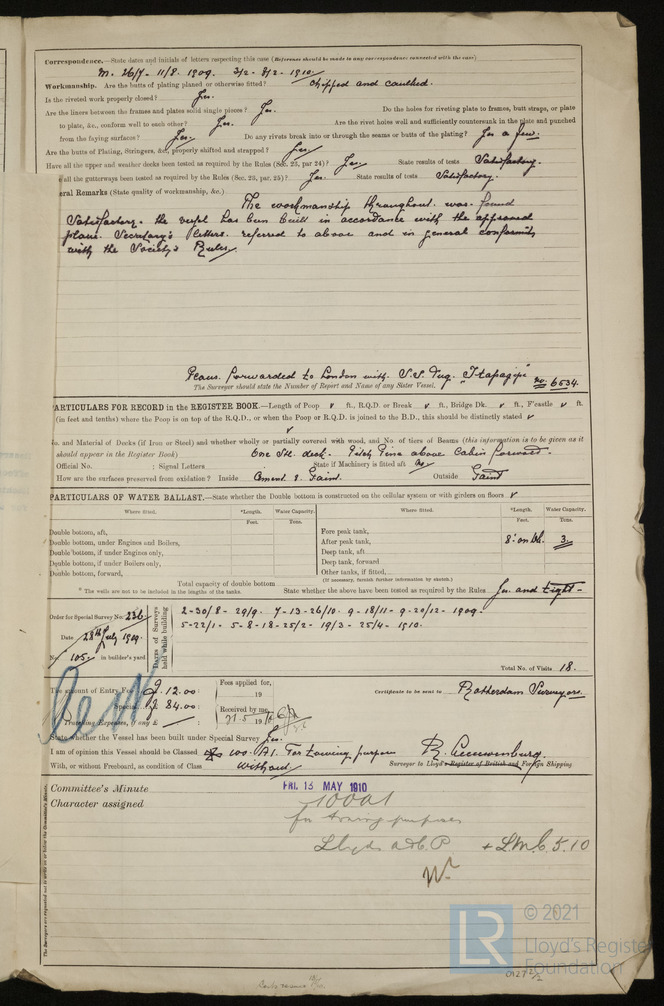 Correspondence.—State dates and initials of letters respecting this case (Reference should be made to any correspondence connected with the case)
M. 26/7 - 11/8. 1909. 3/2 - 8/2 - 1910
Workmanship. Are the butts of plating planed or otherwise fitted? Chipped and caulked.
Is the riveted work properly closed? Yes.
Are the liners between the frames and plates solid single pieces? Yes. Do the holes for riveting plate to frames, butt straps, or plate
to plate, &c., conform well to each other? Yes. Are the rivet holes well and sufficiently countersunk in the plate and punched
from the faying surfaces? Yes. Do any rivets break into or through the seams or butts of the plating? Yes a few.
Are the butts of Plating, Stringers, &c., properly shifted and strapped? Yes.
Have all the upper and weather decks been tested as required by the Rules (Sec. 23, par 24)? Yes. State results of tests Satisfactory.
all the gutterways been tested as required by the Rules (Sec. 23, par. 25)? Yes. State results of tests Satisfactory.
eral Remarks (State quality of workmanship, &c.)
The workmanship throughout was found
Satisfactory. the vessel has been built in accordance with the approved
plans. Secretary's letters. referred to above and in general conformity
with the Society's Rules
Plans forwarded to London with S.S. Tug. "Itapagipe" no. 6534.
The Surveyor should state the Number of Report and Name of any Sister Vessel.
ARTICULARS FOR RECORD in the REGISTER BOOK.—Length of Poop ft., R.Q.D. or Break ft., Bridge Dk. ft., F'castle ft.
(in feet and tenths) where the Poop is on top of the R.Q.D., or when the Poop or R.Q.D. is joined to the B.D., this should be distinctly stated
o. and Material of Decks (if Iron or Steel) and whether wholly or partially covered with wood, and No. of tiers of Beams (this information is to be given as it
should appear in the Register Book) One Stl. deck. Pitch Pine above Cabin forward.
Official No. : Signal Letters State if Machinery is fitted aft No
How are the surfaces preserved from oxidation? Inside Cement & Paint. Outside Paint
PARTICULARS OF WATER BALLAST.—State whether the Double bottom is constructed on the cellular system or with girders on floors
Where fitted. *Length. Water Capacity. Where fitted. *Length. Water Capacity.
Feet. Tons. Feet. Tons.
Double bottom, aft, Fore peak tank,
Double bottom, under Engines and Boilers, After peak tank, 3.
Double bottom, if under Engines only, Deep tank, aft
Double bottom, if under Boilers only, Deep tank, forward
Double bottom, forward, Other tanks, if fitted,
Total capacity of double bottom (If necessary, furnish further information by sketch.)
* The wells are not to be included in the lengths of the tanks. State whether the above have been tested as required by the Rules Yes and tight.
Order for Special Survey No. 236
Date 28th July 1909.
No. 105 in builder's yard.
Dates of Surveys held while building
2-30/8 - 29/9. 7-13-26/10. 9-18/11 - 9-20/12 - 1909.
5-22/1 - 5-8-18-25/2 - 19/3 - 25/4 - 1910.
Total No. of Visits 18.
The amount of Entry Fee 12.00: Fees applied for, 19 Certificate to be sent to Rotterdam Surveyors.
Special 84.00: Received by me,
Travelling Expenses, if any £ : 21.5 1910
State whether the Vessel has been built under Special Survey Yes.
I am of opinion this Vessel should be Classed 100. A1. For towing purposes
With, or without Freeboard, as condition of Class without Surveyor to Lloyd's Register of British and Foreign Shipping
Committee's Minute FRI. 13 MAY 1910
Character assigned 100A1
for towing purposes
Lloyds A & C. P. + L.M.C. 5.10
The Surveyors are requested not to write on or below the Committee's Minute.
LR
© 2021
Lloyd's Register
Foundation